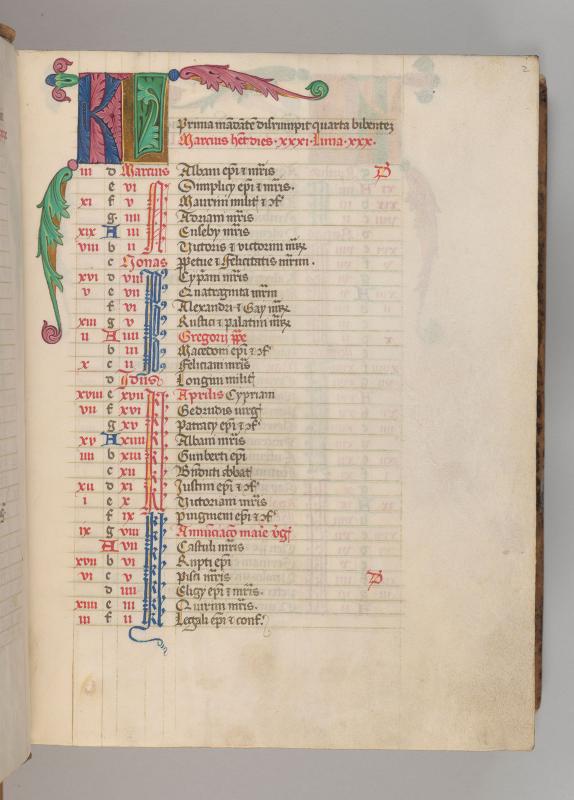 2
KL
Prima mandente disrumpit quarta bibentez
Marcius het dies · xxxi · luna · xxx ·
iii d Marcius Albani epi & mris
e vi Simplicy epi & mris ·
xi f v Maurini milit & cf
g iiii Adriani mris
xix A iii Eusebÿ mris
viii b ii Victoris & victorini
c Nonas Ppetue & Felicitatis mrim ·
xvi d viii Cypani mris
v e vii Quatraginta mrim
f vi Alexandri & Gay
xiii g v Rustici & palatini
ii A iiii Gregorij ppe
b iii Macedoni epi & cf
x c ii Feliciani mris
d Idus Longini milit
xviii e xvii Aprilis Cypriani
vii f xvi Gedrudis virg
g xv Patricy epi & cf
xv A xiiii Albani mris
iiii b xiii Gunberti epi
c xii Bndicti abbat
xii d xi Justini epi & cf
i e x Victoriani mris
f ix Pingmeni epi & cf
ix g viii Annuciaco marie vg
A vii Castuli mris
xvii b vi Rupti epi
vi c v Pisti mris
d iiii Eligy epi & mris ·
xiiii e iii Quirini mris ·
iii f ii Legali epi & conf